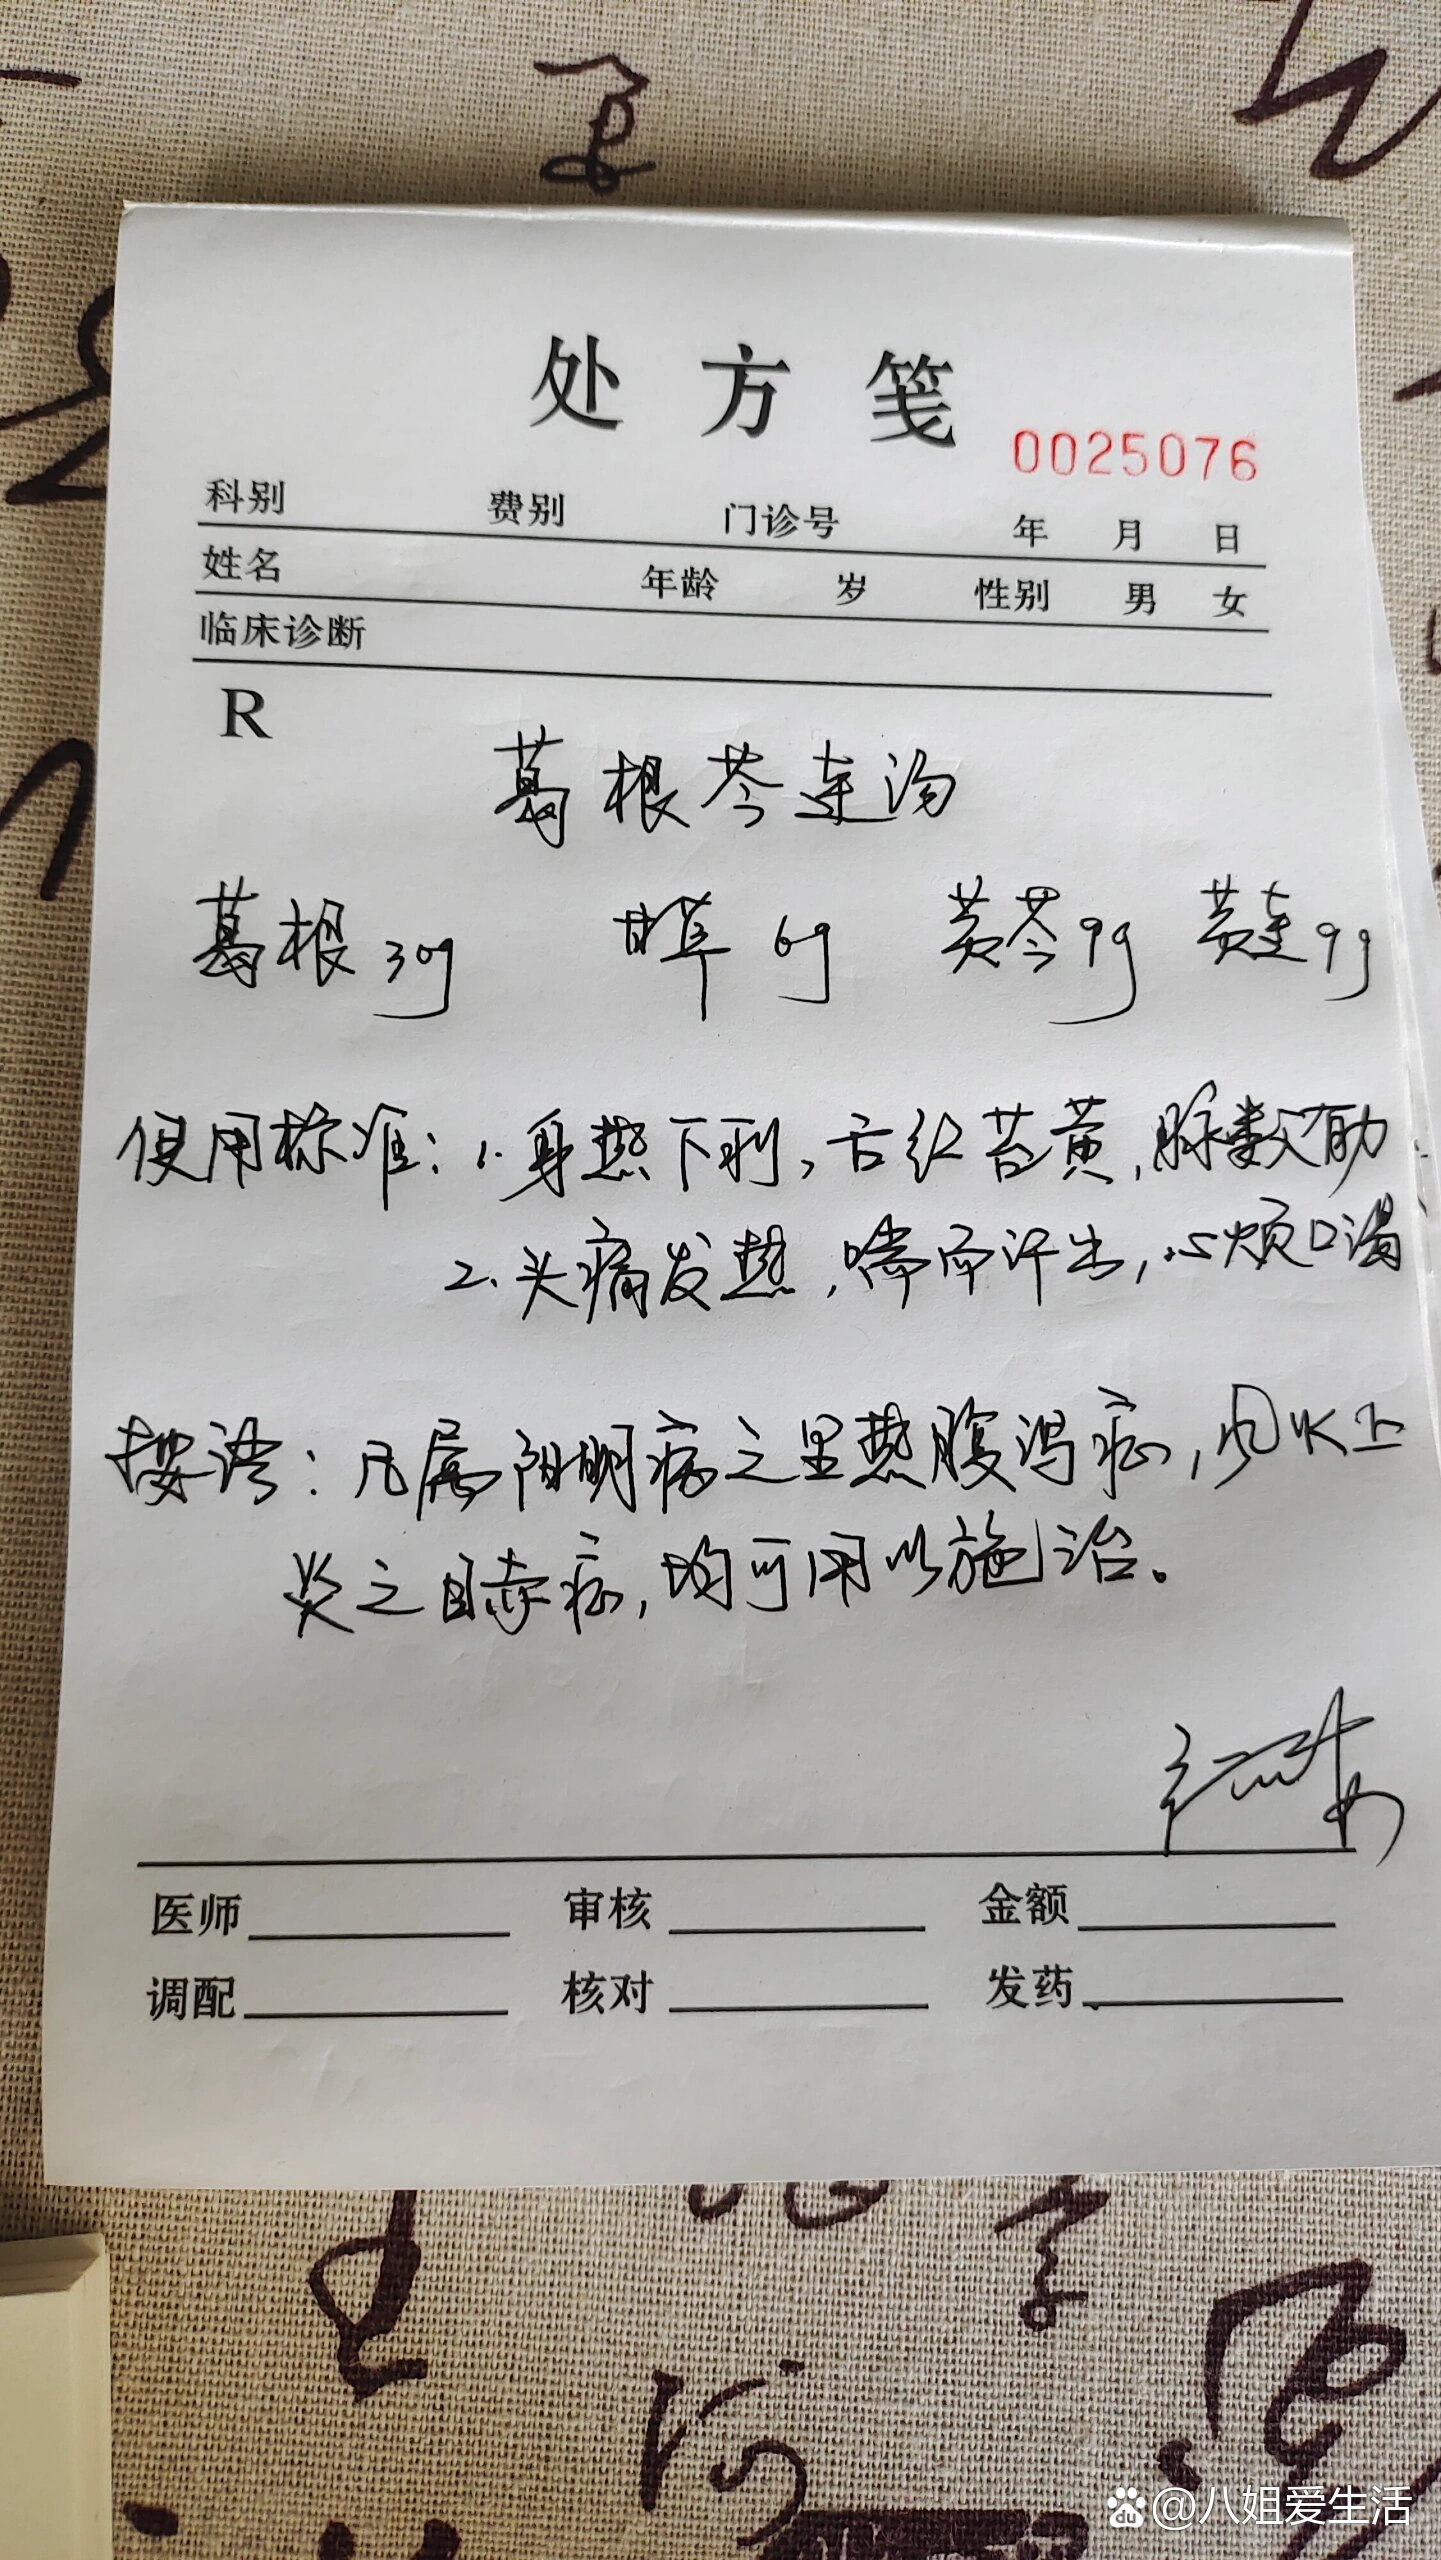 处方笺
0025076
科别 费别 门诊号 年 月 日
姓名 年龄 岁 性别 男 女
临床诊断
R
葛根芩连汤
葛根30g 甘草6g 黄芩9g 黄连9g
使用标准：1.身热下利，舌红苔黄，脉数有力
2.头痛发热，喘而汗出，心烦口渴
按语：凡属阳明病之里热腹泻症，风火上
炎之目赤症，均可用以施治。
医师 审核 金额
调配 核对 发药
Bai du @八姐爱生活